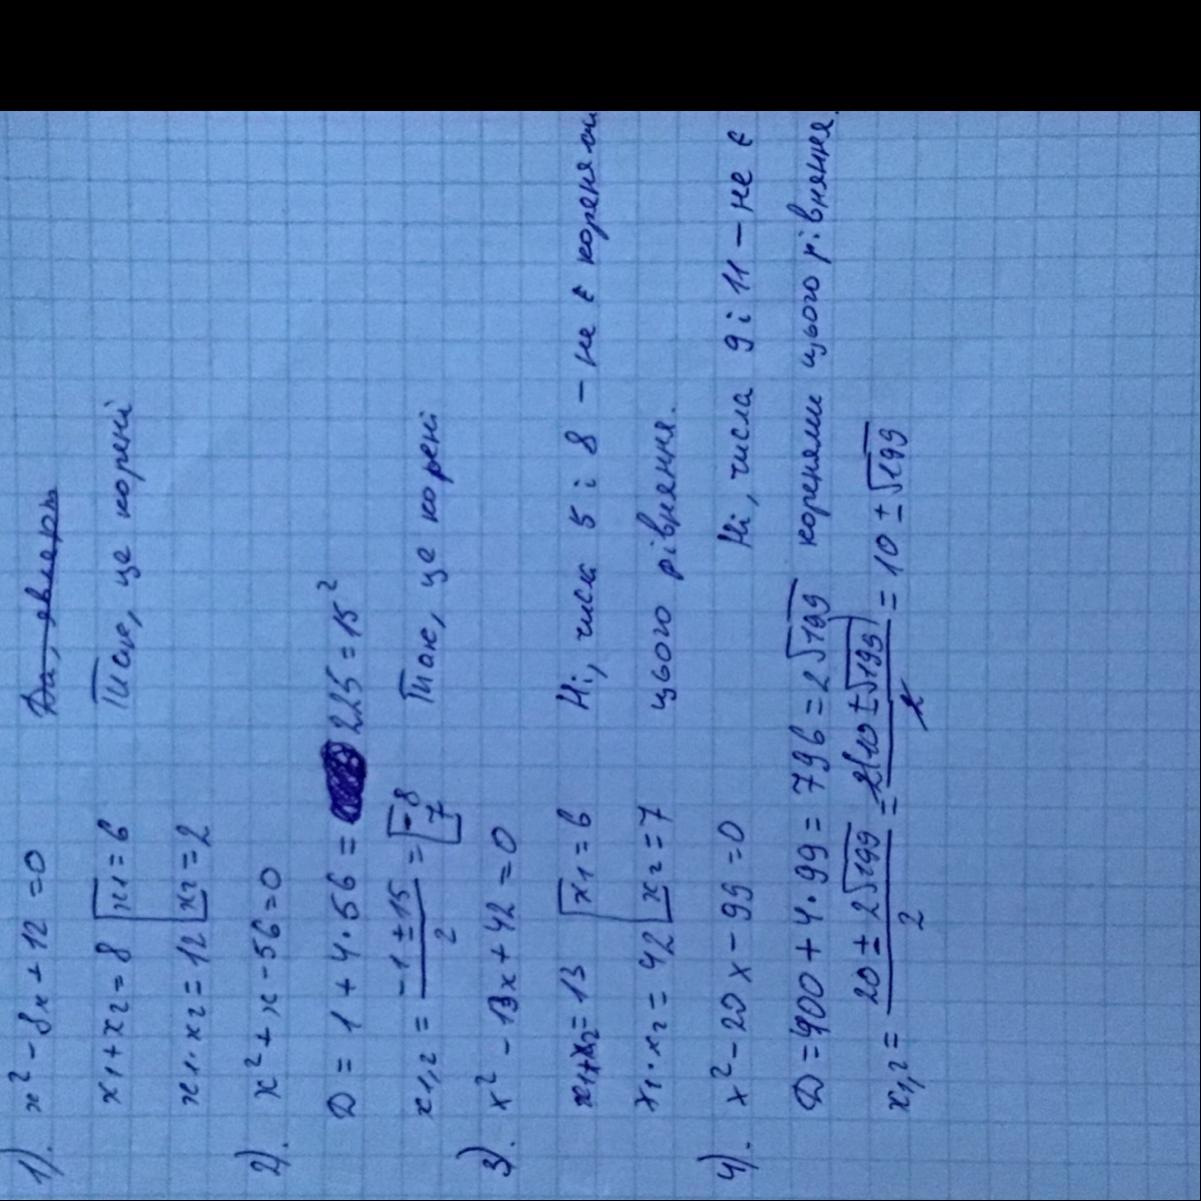 1). x² - 8x + 12 = 0 Да, являерь
x1 + x2 = 8 [x1 = 6 Так, це корені
x1 · x2 = 12 [x2 = 2
2). x² + x - 56 = 0
D = 1 + 4 · 56 = 225 = 15²
x1,2 = (-1 ± 15)/2 = [-8 7 Так, це корені
3). x² - 13x + 42 = 0
x1 + x2 = 13 [x1 = 6 Ні, числа 5 і 8 - не є коренями
x1 · x2 = 42 [x2 = 7 цього рівняння.
4). x² - 20x - 99 = 0 Ні, числа 9 і 11 - не є
D = 400 + 4 · 99 = 796 = 2√199 коренями цього рівняння.
x1,2 = (20 ± 2√199)/2 = 2(10 ± √199)/2 = 10 ± √199